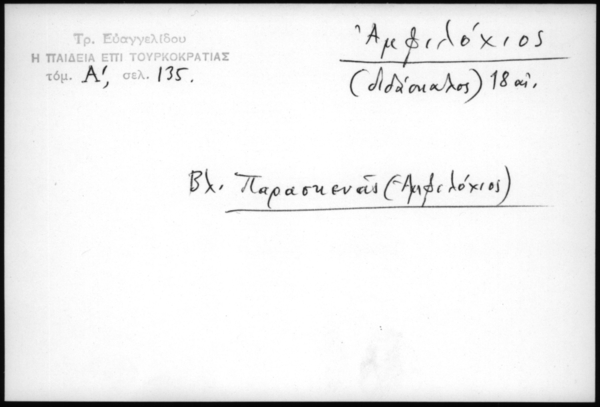 Τρ. Εὐαγγελίδου
Η ΠΑΙΔΕΙΑ ΕΠΙ ΤΟΥΡΚΟΚΡΑΤΙΑΣ
τόμ. Α', σελ. 135.
Ἀμφιλόχιος
(διδάσκαλος) 18 αἰ.
Βλ. Παρασκευᾶς (Ἀμφιλόχιος)